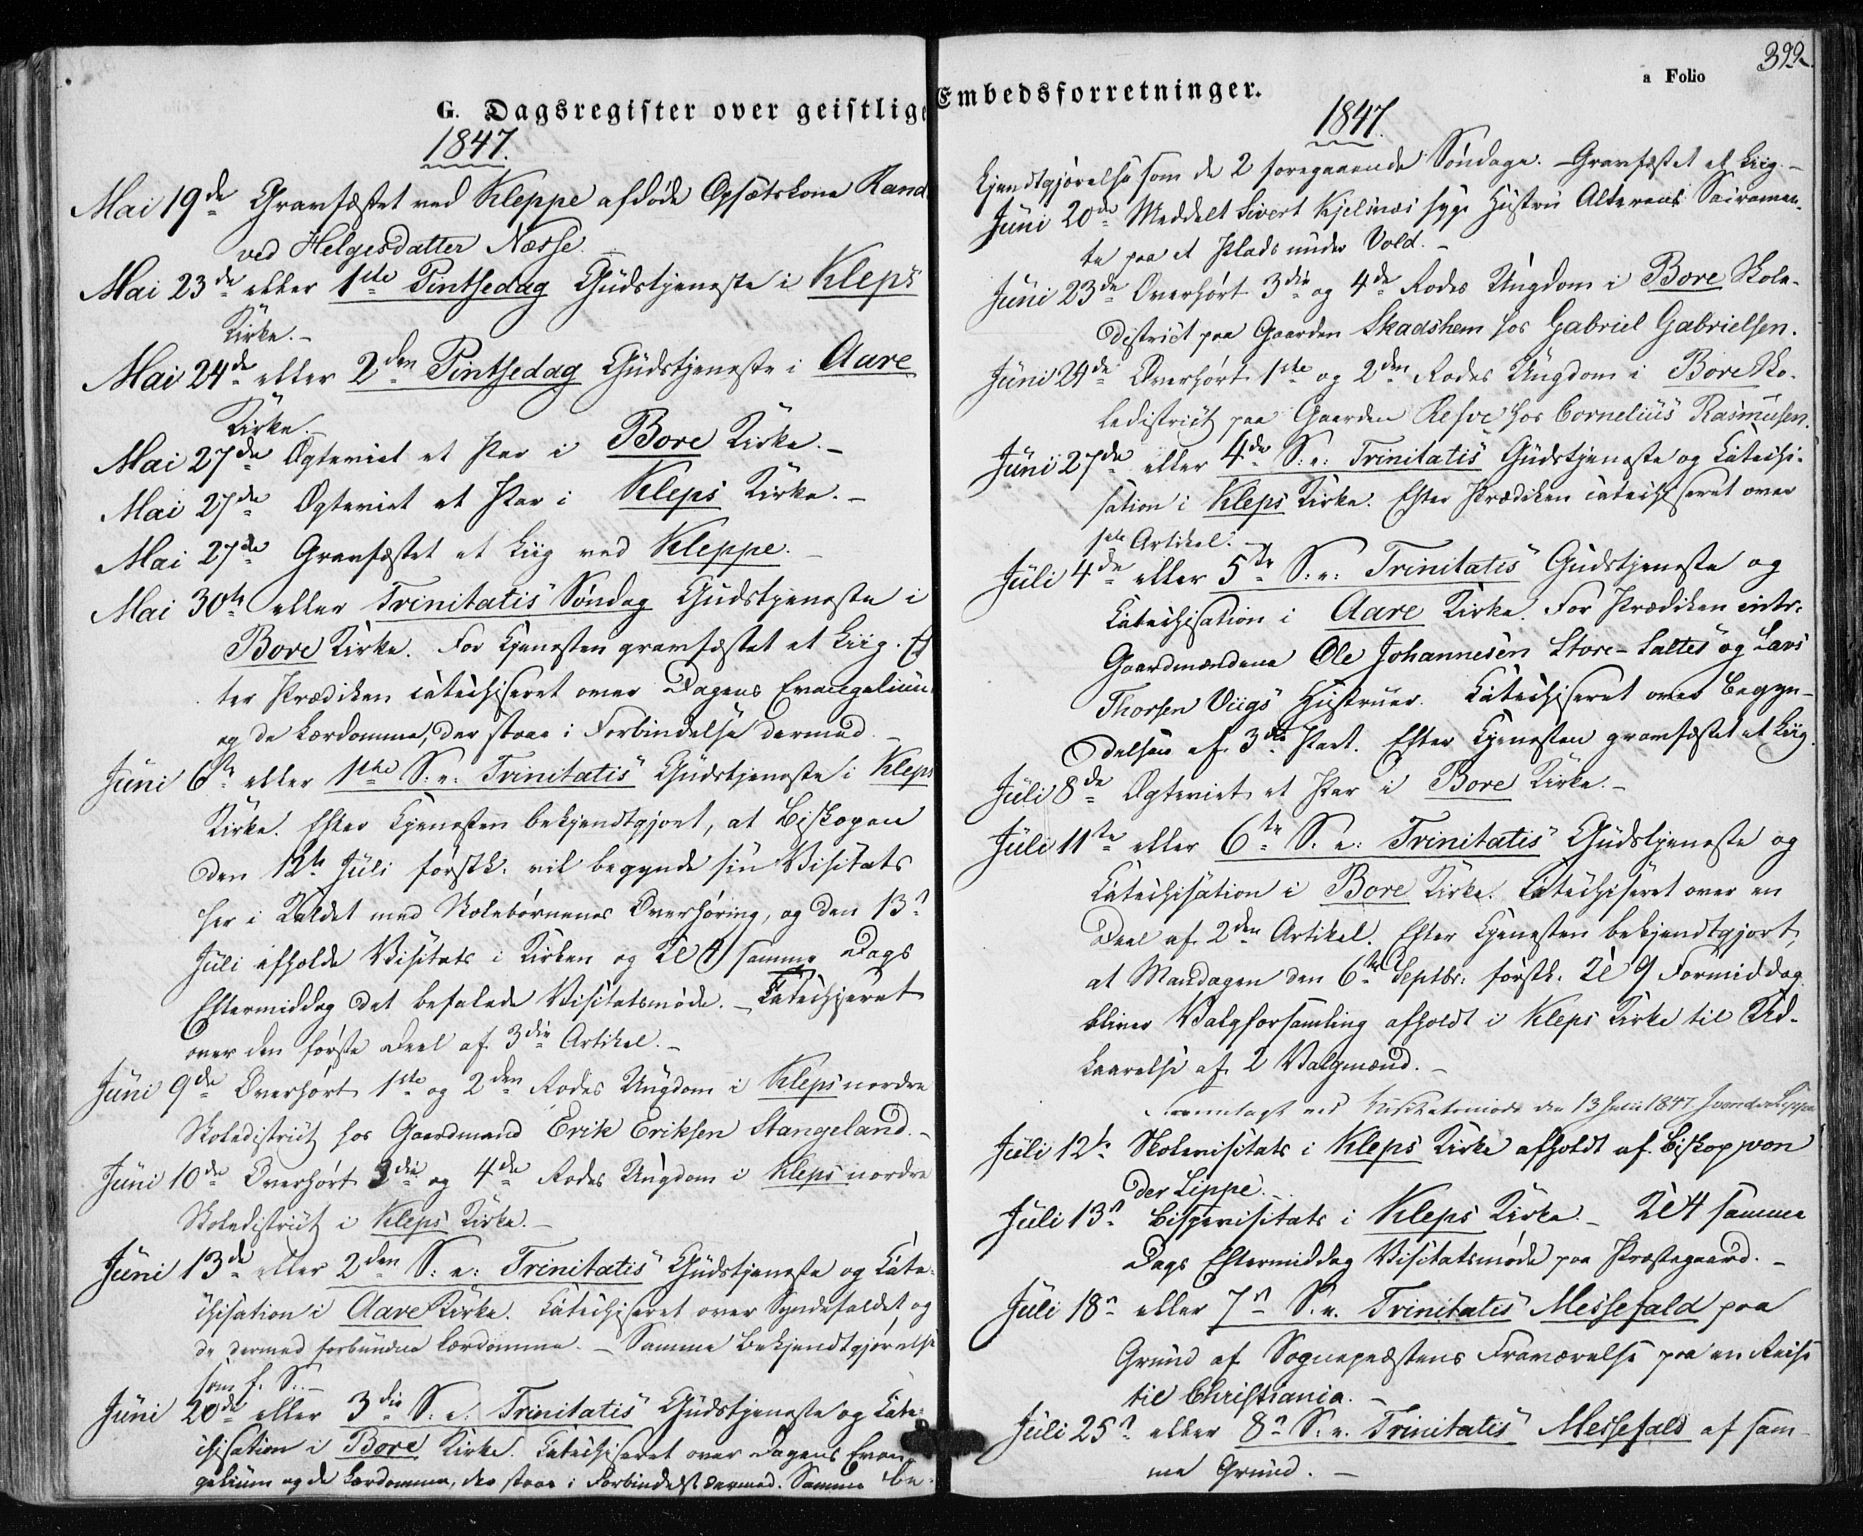 G. Dagsregister over geistlige
1847.
Mai 19de Gravfæstet ved Kleppe afdøde Opsætskone Rand
ved Helgesdatter Næsse.
Mai 23de eller 1ste Pintsedag Gudstjeneste i Kleps
Kirke. –
Mai 24de eller 2den Pintsedag Gudstjeneste i Aare
Kirke. –
Mai 27de Ægteviet et Par i Bore Kirke. –
Mai 27de Ægteviet et Par i Kleps Kirke. –
Mai 27de Gravfæstet et Liig ved Kleppe. –
Mai 30te eller Trinitatis Søndag Gudstjeneste i
Bore Kirke. Før Tjenesten gravfæstet et Liig. Ef
ter Prædiken catechiseret over Dagens Evangelium
og de Lærdomme, der staae i Forbindelse dermed. –
Juni 6te eller 1ste S. e. Trinitatis Gudstjeneste i Kleps
Kirke. Efter Tjenesten bekjendtgjort, at Biskopen
den 12te Juli førstk. vil begynde sin Visitats
her i Kaldet med Skolebørnenes Overhøring, og den 13de
Juli afholde Visitats i Kirken og Kl 4 samme Dags
Eftermiddag det befalede Visitatsmøde. – Catechiseret
over den første Deel af 3die Artikel. –
Juni 9de Overhørt 1ste og 2den Rodes Ungdom i Kleps nordre
Skoledistrict hos Gaardmand Erik Eriksen Stangeland. –
Juni 10de Overhørt 3die og 4de Rodes Ungdom i Kleps nordre
Skoledistrict i Kleps Kirke. –
Juni 13de eller 2den S. e. Trinitatis Gudstjeneste og Cate-
chisation i Aare Kirke. Catechiseret over Syndefaldet, og
de dermed forbundne Lærdomme. – Samme Bekjendtgjørelse
som f. S. –
Juni 20de eller 3die S. e. Trinitatis Gudstjeneste og Cate-
chisation i Bore Kirke. Catechiseret over Dagens Evan-
gelium og de Lærdomme, der staae i Forbindelse dermed. Samme Be-
Embedsforretninger.
a Folio
399.
1847.
kjendtgjørelse som de 2 foregaaende Søndage. – Gravfæstet et Liig. –
Juni 20de Meddelt Sivert Kjelsnæs syge Hustru Alterens Sacramen-
te paa et Plads under Vold. –
Juni 23de Overhørt 3die og 4de Rodes Ungdom i Bore Skole-
district paa Gaarden Skadshem hos Gabriel Gabrielsen.
Juni 24de Overhørt 1ste og 2den Rodes Ungdom i Bore Sko-
ledistrict paa Gaarden Refve hos Cornelius Rasmusen.
Juni 27de eller 4de S. e. Trinitatis Gudstjeneste og Catechi-
sation i Kleps Kirke. Efter Prædiken catechiseret over
1ste Artikel. –
Juli 4de eller 5te S. e. Trinitatis Gudstjeneste og
Catechisation i Aare Kirke. Før Prædiken intr.
Gaardmændene Ole Johannesen Store-Saltes og Lars
Thorsen Viigs Hustruer. Catechiseret over Begyn-
delsen af 3die Part. Efter Tjenesten gravfæstet et Liig.
Juli 8de Ægteviet et Par i Bore Kirke. –
Juli 11te eller 6te S. e. Trinitatis Gudstjeneste og
Catechisation i Bore Kirke. Catechiseret over en
Deel af 2den Artikel. Efter Tjenesten bekjendtgjort,
at Mandagen den 6te Septbr. førstk. Kl 9 Formiddag
bliver Valgforsamling afholdt i Kleps Kirke til Ud-
kaarelse af 2 Valgmænd. –
Fremlagt ved Visitatsmøde den 13 Juli 1847. J vonderLippe
Juli 12te Skolevisitats i Kleps Kirke afholdt af Biskop von
der Lippe. –
Juli 13de Bispevisitats i Kleps Kirke. – Kl 4 samme
Dags Eftermiddag Visitatsmøde paa Præstegaard. –
Juli 18de eller 7de S. e. Trinitatis Messefald paa
Grund af Sognepræstens Fraværelse paa en Reise
til Christiania. –
Juli 25de eller 8de S. e. Trinitatis Messefald af sam-
me Grund. –